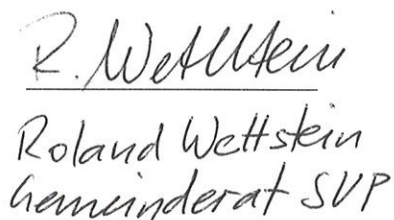 R. Wettstein
Roland Wettstein
Gemeinderat SVP